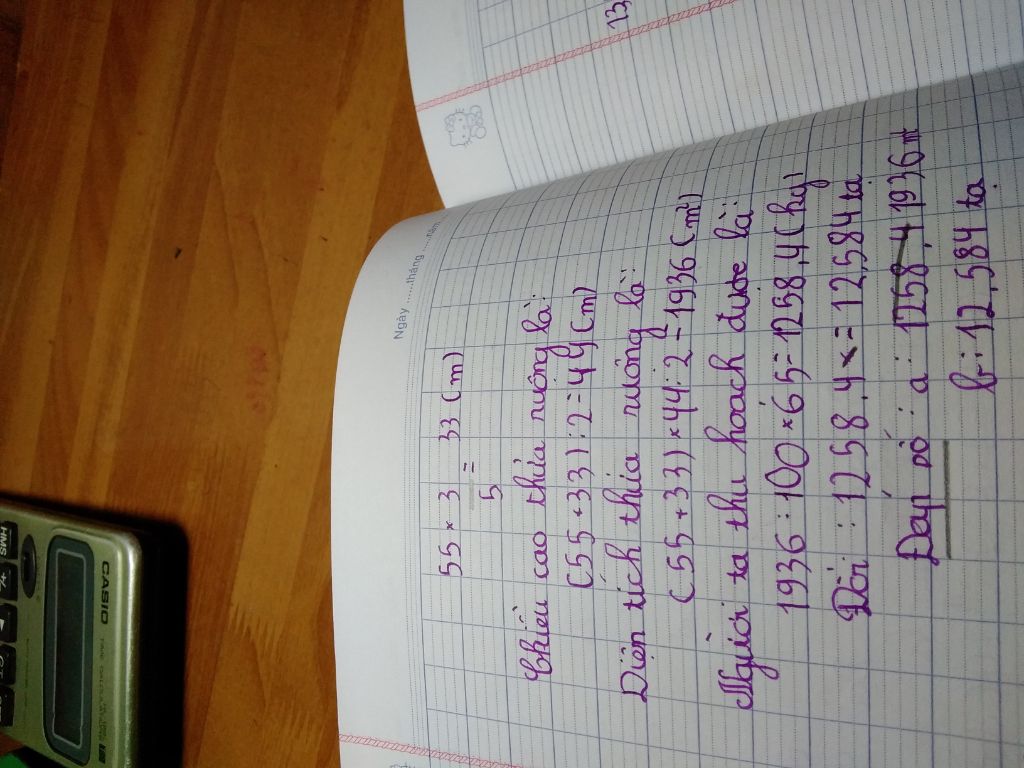 Ngày ......tháng ......năm
55 × 3 / 5 = 33 (m)
Chiều cao thửa ruộng là:
(55 + 33) : 2 = 44 (m)
Diện tích thửa ruộng là:
(55 + 33) × 44 : 2 = 1936 (m²)
Người ta thu hoạch được là:
1936 : 100 × 65 = 1258,4 (kg)
Đổi : 1258,4 = 12,584 tạ
Đáp số: a: 1936 m²
b: 12,584 tạ
13,
CASIO
HMS